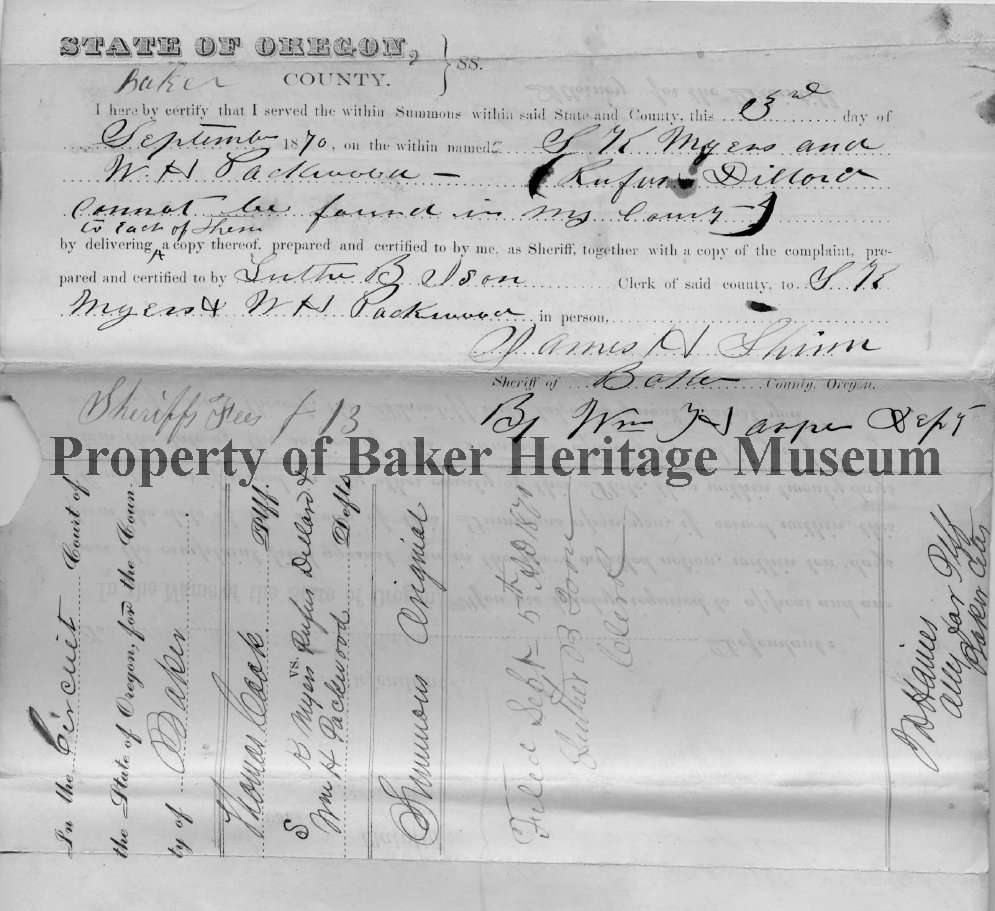 STATE OF OREGON, } SS.
Baker COUNTY.
I here by certify that I served the within Summons within said State and County, this 3rd day of
September 1870, on the within named S K Myers and
W H Packwood — (Rufus Dillord
cannot be found in my County)
to Each of Them
by delivering a copy thereof, prepared and certified to by me, as Sheriff, together with a copy of the complaint, pre-
pared and certified to by Luther B Ison Clerk of said county, to S K
Myers & W H Packwood in person,
James H Shinn
Sheriff of Baker County, Oregon.
Sheriffs Fees $ 13
By Wm H Harper Depy
Property of Baker Heritage Museum
In the Circuit Court of
the State of Oregon, for the Coun-
ty of Baker
Thomas Cook Plff
vs.
S K Myers Rufus Dillard &
Wm H Packwood Defts
Summons Original
Filed Sept 5th 1870
Luther B Ison
Clerk
Haines
Atty for Plff
Baker City